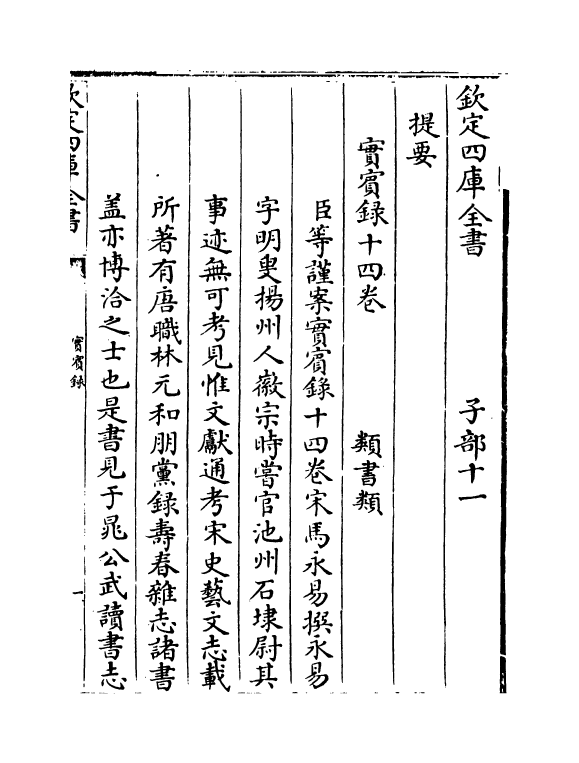 欽定四庫全書 子部十一
提要
實賓録十四卷 類書類
臣等謹案實賓錄十四卷宋馬永易撰永易
字明叟揚州人徽宗時嘗官池州石埭尉其
事迹無可考見惟文獻通考宋史藝文志載
所著有唐職林元和朋黨録壽春雜志諸書
盖亦博洽之士也是書見于晁公武讀書志
欽定四庫全書
實賓録
一